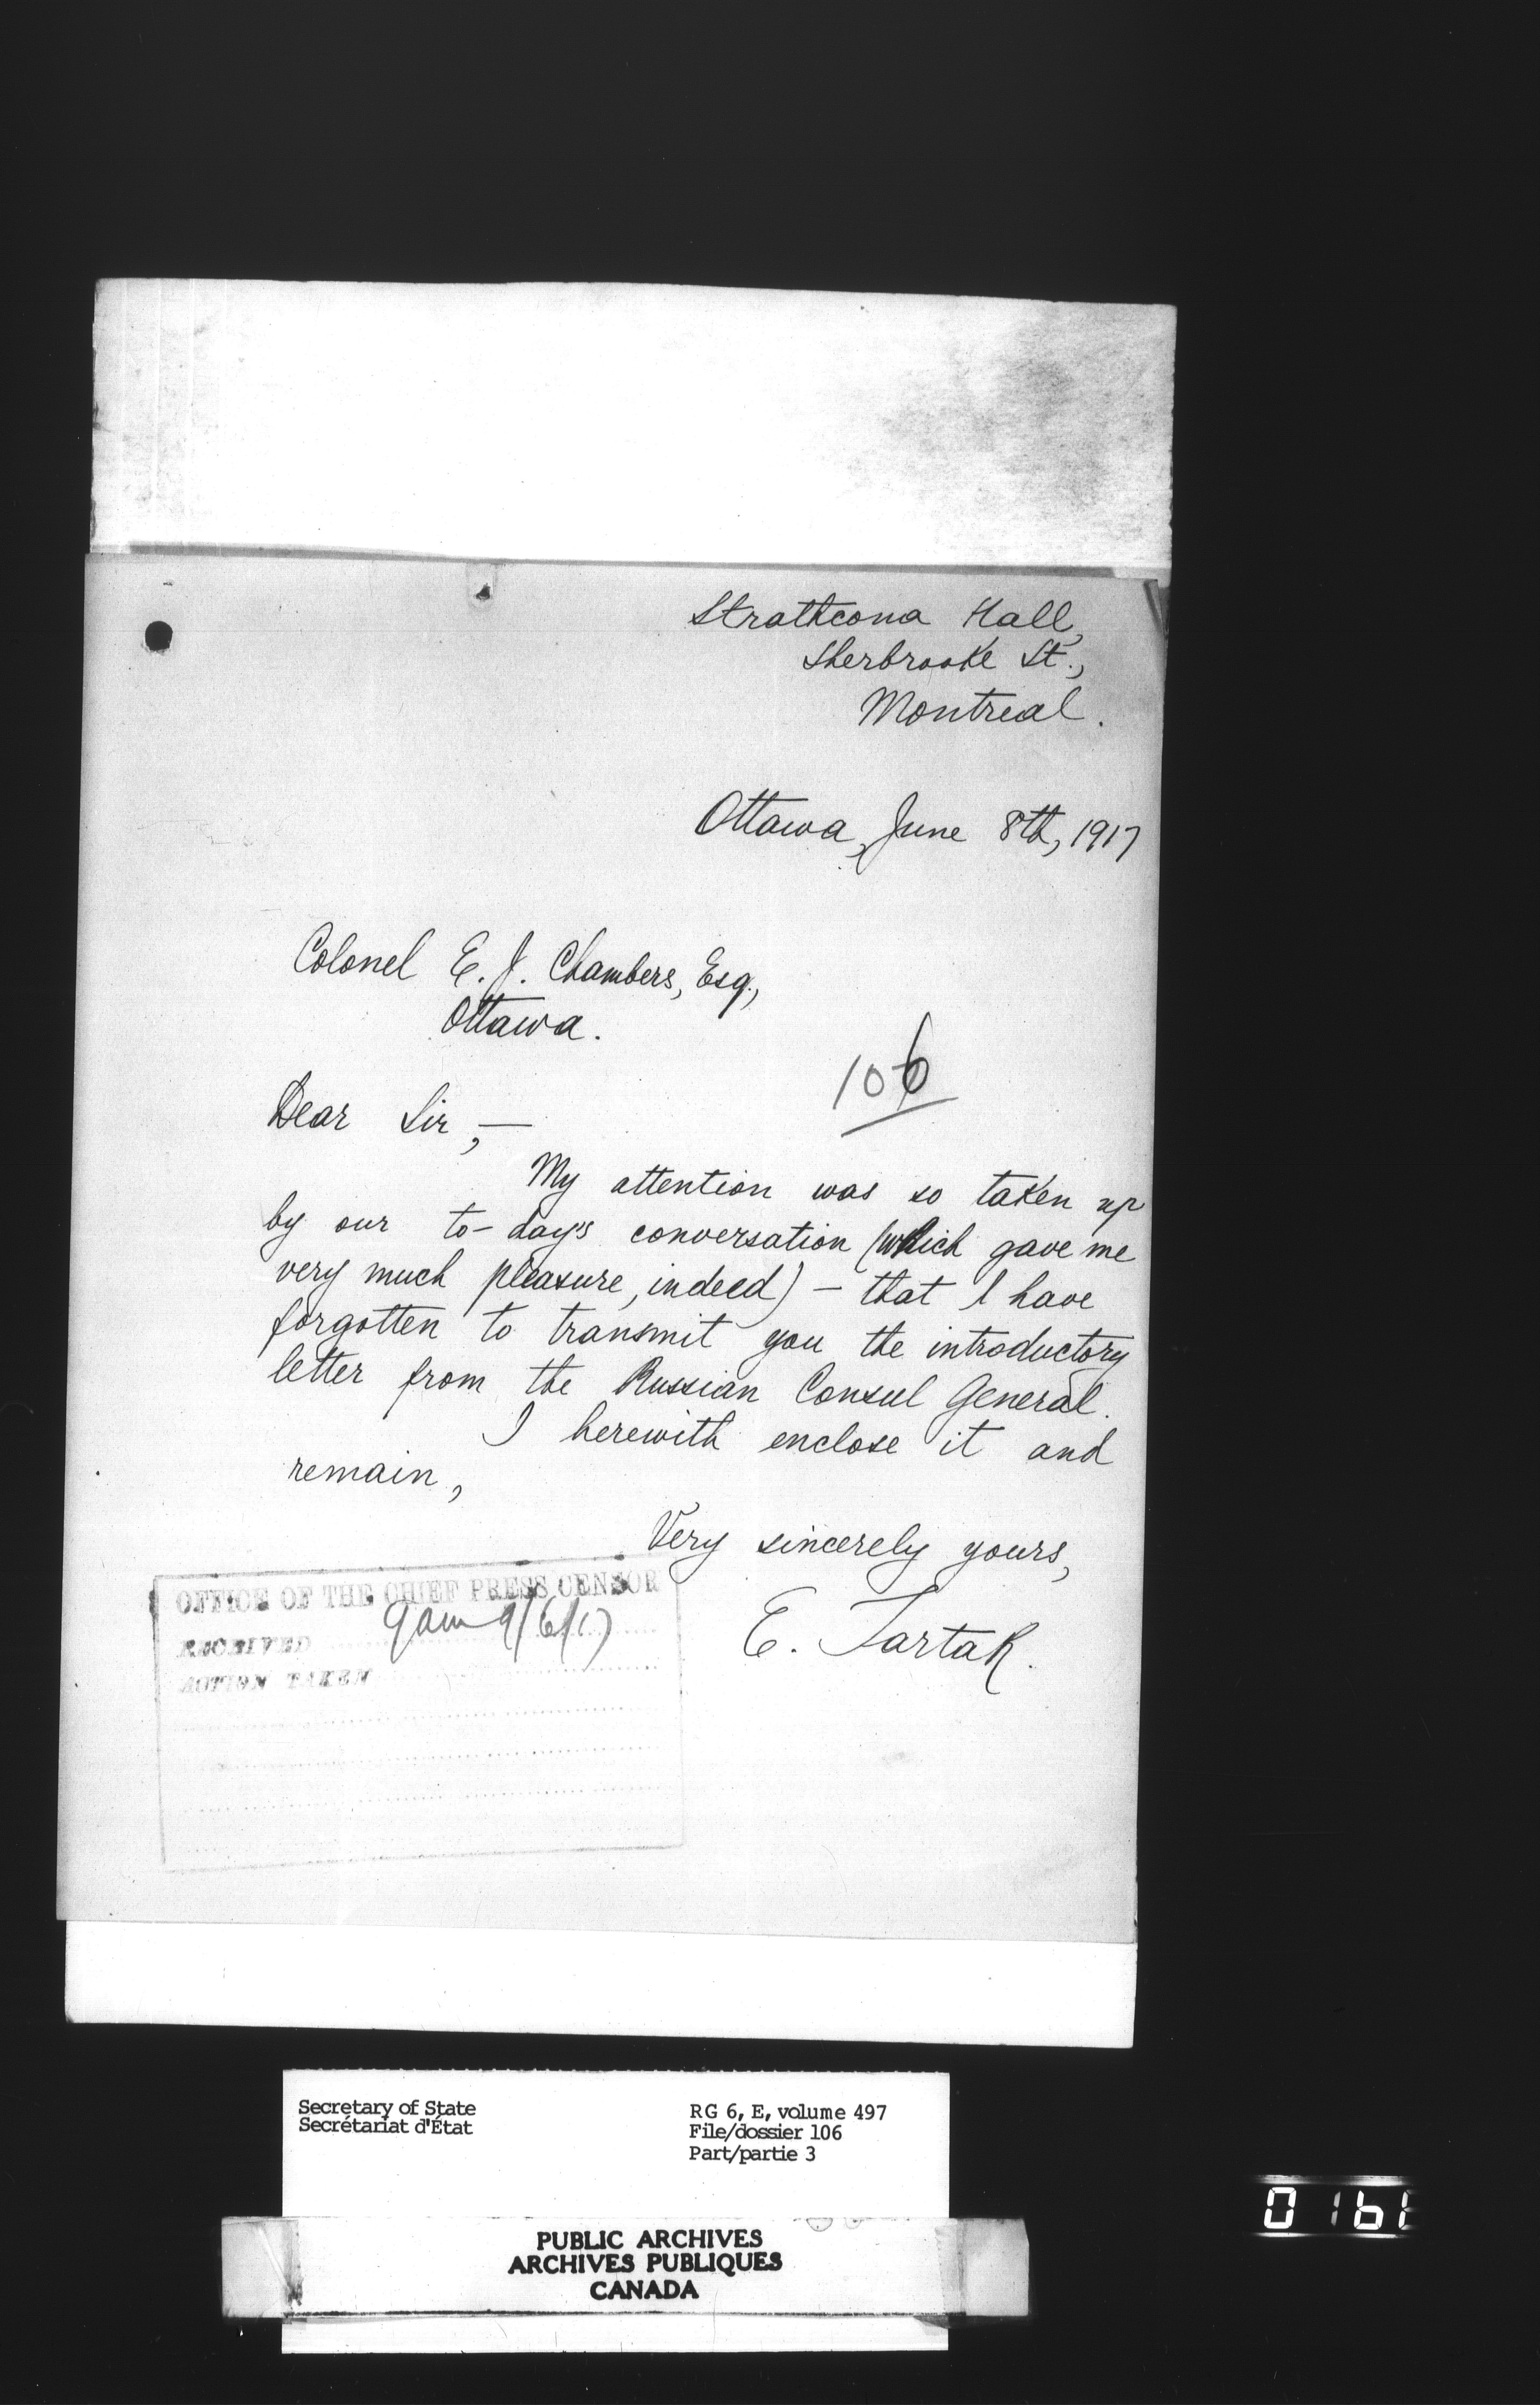 Strathcona Hall,
Sherbrooke St.,
Montreal.
Ottawa, June 8th, 1917
Colonel E. J. Chambers, Esq.,
Ottawa.
106
Dear Sir,—
My attention was so taken up
by our to-day's conversation (which gave me
very much pleasure, indeed) – that I have
forgotten to transmit you the introductory
letter from the Russian Consul General.
I herewith enclose it and
remain,
Very sincerely yours,
E. Tartak.
OFFICE OF THE CHIEF PRESS CENSOR
RECEIVED 9am 9/6/17
ACTION TAKEN
Secretary of State
Secrétariat d'État
RG 6, E, volume 497
File/dossier 106
Part/partie 3
PUBLIC ARCHIVES
ARCHIVES PUBLIQUES
CANADA